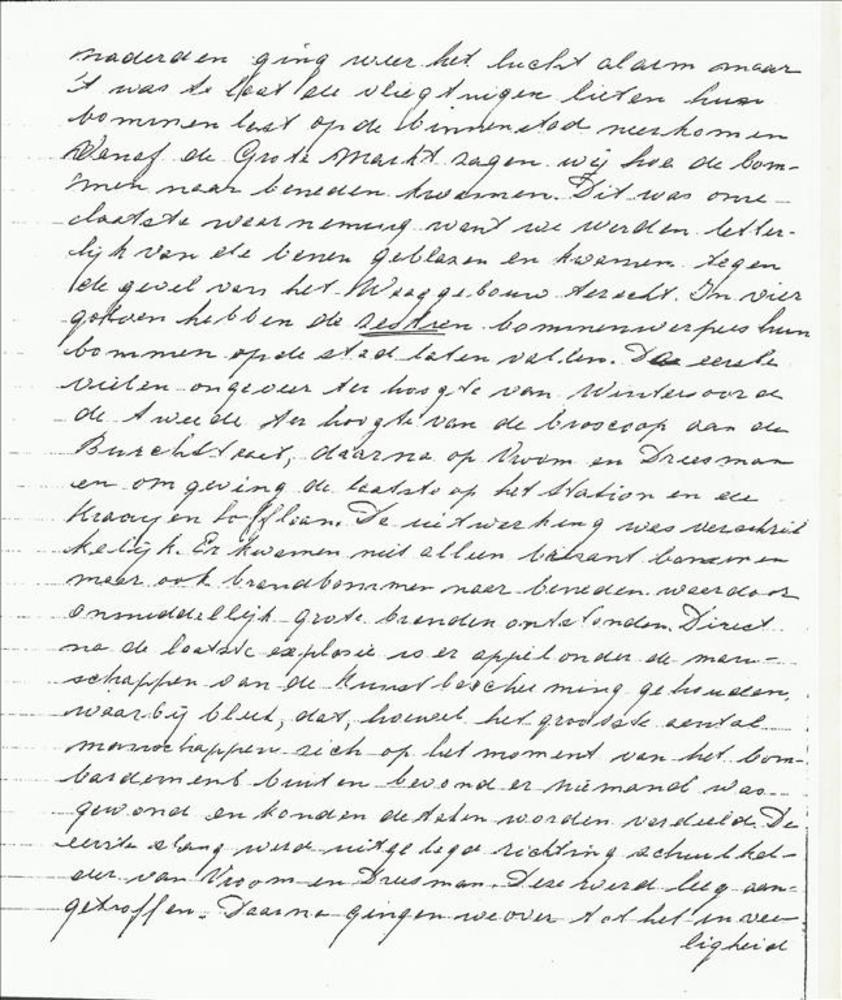 naderden ging weer het lucht alarm maar
't was te laat de vliegtuigen lieten hun
bommen last op de binnenstad neerkomen
Vanaf de Grote Markt zagen wij hoe de bom-
men naar beneden kwamen. Dit was onze
laatste waarneming want we werden letter-
lijk van de benen geblazen en kwamen tegen
de gevel van het Waaggebouw terecht. In vier
golven hebben de zestien bommenwerpers hun
bommen op de stad laten vallen. De eerste
vielen ongeveer ter hoogte van Wintersoord
de tweede ter hoogte van de bioscoop aan de
Burchtstraat, daarna op Vroom en Dreesman
en omgeving de laatste op het Station en de
Kraayenhofflaan. De uitwerking was verschrik
kelijk. Er kwamen niet alleen brisant bommen
maar ook brandbommen naar beneden waardoor
onmiddellijk grote branden ontstonden. Direct
na de laatste explosie is er appel onder de man-
schappen van de Kunstbescherming gehouden,
waarbij bleek, dat, hoewel het grootste aantal
manschappen zich op het moment van het bom-
bardement buiten bevond er niemand was
gewond en konden de taken worden verdeeld. De
eerste slang werd uitgelegd richting schuilkel-
der van Vroom en Dreesman. Deze werd leeg aan-
getroffen. Daarna gingen we over tot het in vei-
ligheid